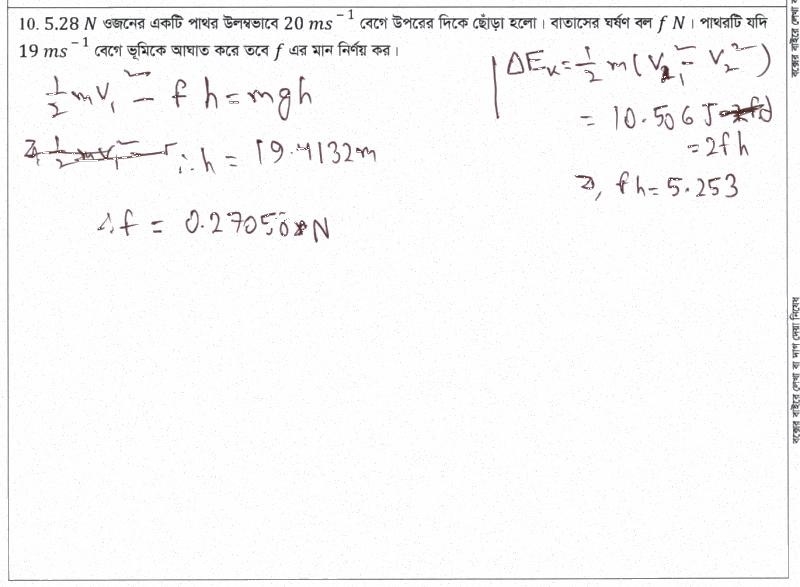 10. 5.28 N ওজনের একটি পাথর উলম্বভাবে 20 ms⁻¹ বেগে উপরের দিকে ছোঁড়া হলো। বাতাসের ঘর্ষণ বল f N। পাথরটি যদি
19 ms⁻¹ বেগে ভূমিকে আঘাত করে তবে f এর মান নির্ণয় কর।
½mv₁² − fh = mgh
∴h = 19.4132m
∴f = 0.27050 N
ΔEₖ = ½m(v₁² − v₂²)
= 10.506 J
= 2fh
⇒, fh = 5.253
বক্সের বাইরে লেখা বা দাগ দেয়া নিষেধ
বক্সের বাইরে লেখা ব